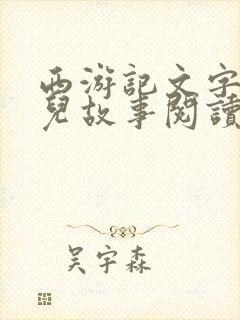 西游記文字
兒故事閱讀
吴宇森